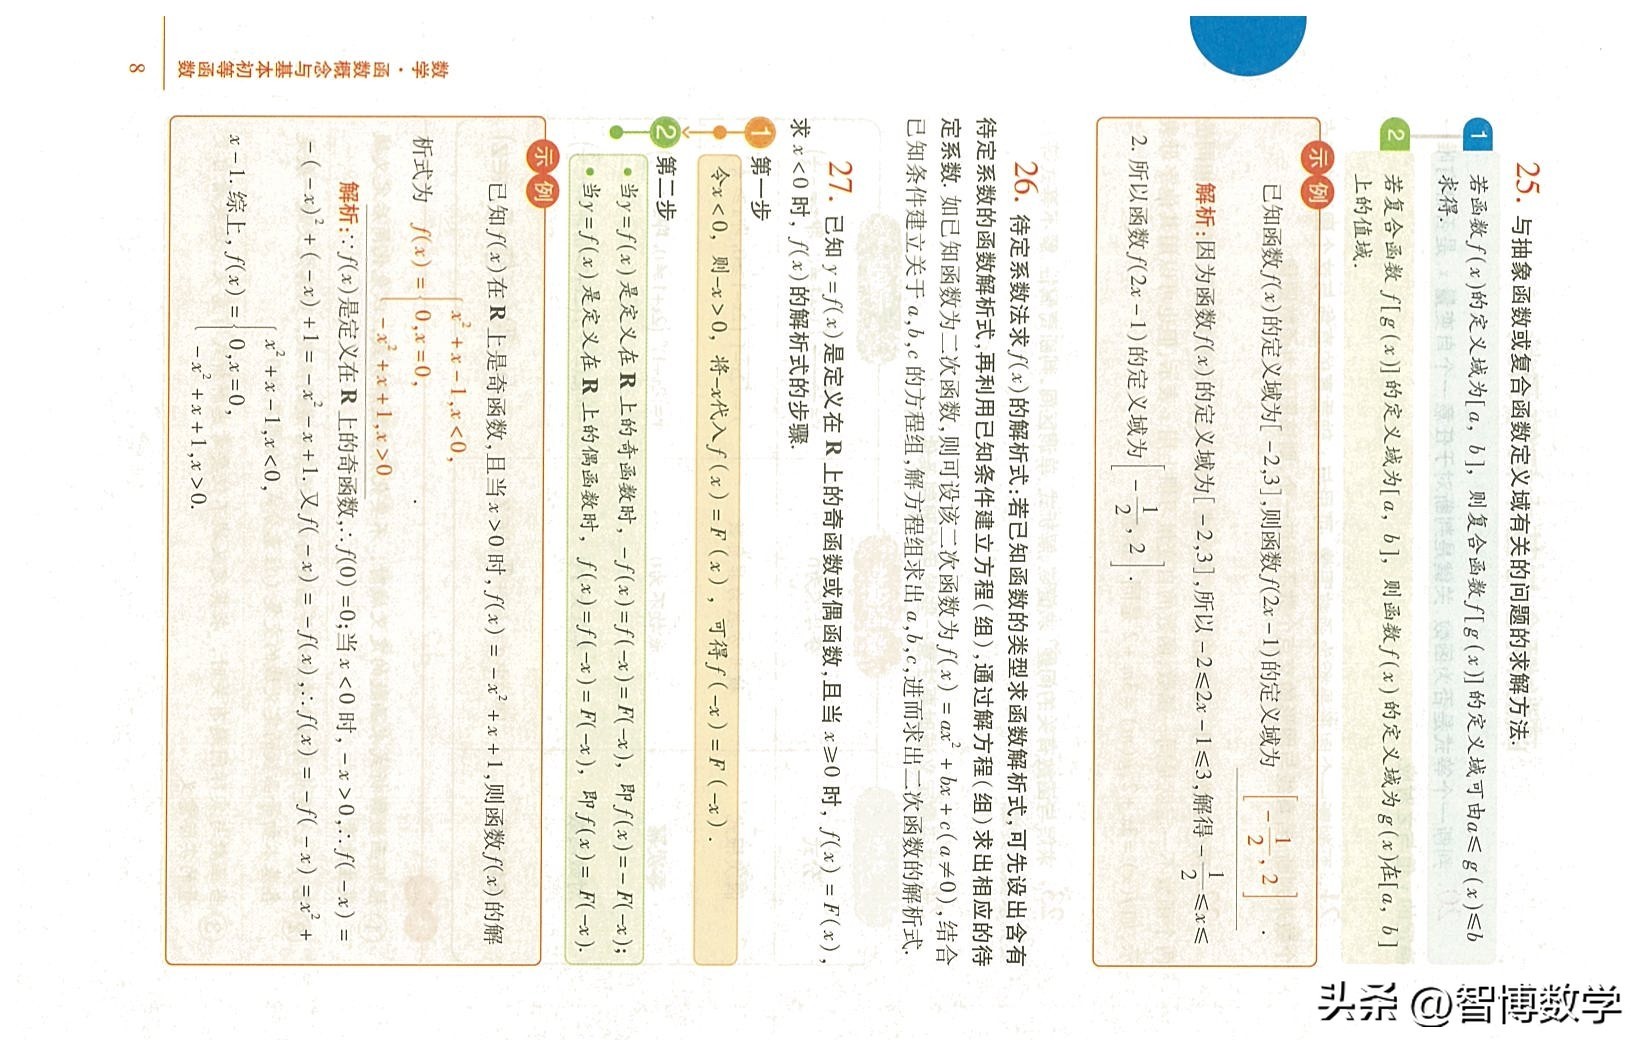 25. 与抽象函数或复合函数定义域有关的问题的求解方法.
1 若函数f(x)的定义域为[a, b]，则复合函数f[g(x)]的定义域可由a≤g(x)≤b
求得.
2 若复合函数f[g(x)]的定义域为[a, b]，则函数f(x)的定义域为g(x)在[a, b]
上的值域.
示例
已知函数f(x)的定义域为[-2,3],则函数f(2x-1)的定义域为 [-1/2, 2] .
解析:因为函数f(x)的定义域为[-2,3],所以-2≤2x-1≤3,解得-1/2≤x≤
2.所以函数f(2x-1)的定义域为[-1/2, 2].
26. 待定系数法求f(x)的解析式:若已知函数的类型求函数解析式,可先设出含有
待定系数的函数解析式,再利用已知条件建立方程(组),通过解方程(组)求出相应的待
定系数. 如已知函数为二次函数,则可设该二次函数为f(x)=ax²+bx+c(a≠0),结合
已知条件建立关于a,b,c的方程组,解方程组求出a,b,c,进而求出二次函数的解析式.
27. 已知y=f(x)是定义在R上的奇函数或偶函数,且当x≥0时, f(x)=F(x),
求x<0时, f(x)的解析式的步骤.
1 第一步
令x<0，则-x>0，将-x代入f(x)=F(x)，可得f(-x)=F(-x).
2 第二步
•当y=f(x)是定义在R上的奇函数时，-f(x)=f(-x)=F(-x)，即f(x)=-F(-x);
•当y=f(x)是定义在R上的偶函数时，f(x)=f(-x)=F(-x)，即f(x)=F(-x).
示例
已知f(x)在R上是奇函数,且当x>0时,f(x)=-x²+x+1,则函数f(x)的解
x²+x-1,x<0,
析式为 f(x)={0,x=0, .
-x²+x+1,x>0
解析:∵f(x)是定义在R上的奇函数,∴f(0)=0;当x<0时,-x>0,∴f(-x)=
-(-x)²+(-x)+1=-x²-x+1.又f(-x)=-f(x),∴f(x)=-f(-x)=x²+
x²+x-1,x<0,
x-1.综上,f(x)={0,x=0,
-x²+x+1,x>0.
数学·函数概念与基本初等函数
8
头条 @智博数学